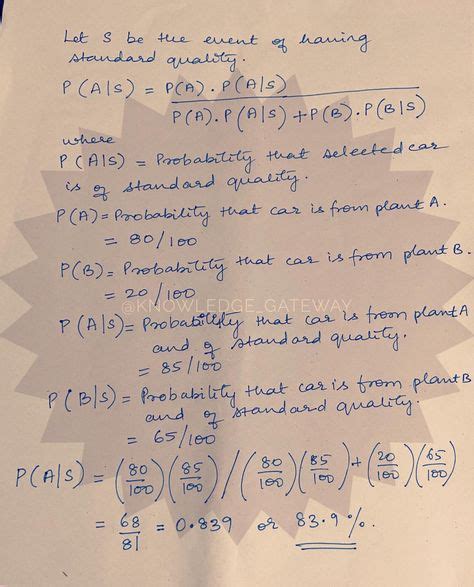 Let S be the event of having
standard quality.
P(A|S) = P(A) . P(A|S)
P(A).P(A|S) + P(B).P(B|S)
where
P(A|S) = Probability that selected car
is of standard quality.
P(A) = Probability that car is from plant A.
= 80/100
P(B) = Probability that car is from plant B.
= 20/100
@KNOWLEDGE_GATEWAY
P(A|S) = Probability that car is from plant A
and of standard quality.
= 85/100
P(B|S) = Probability that car is from plant B
and of standard quality.
= 65/100
P(A|S) = (80/100)(85/100)/(80/100)(85/100)+(20/100)(65/100)
= 68/81 = 0.839 or 83.9%.